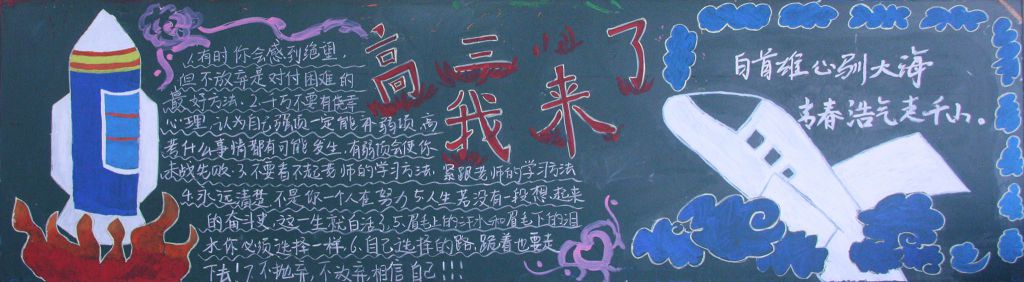 高三我来了
1.有时你会感到绝望,
但不放弃是对付困难的
最好方法.2.千万不要有侥幸
心理,认为自己强项一定能有弱项,高
考什么事情都有可能发生,有弱项会使你
未战先败.3.不要看不起老师的学习方法,紧跟老师的学习方法
4.永远清楚不是你一个人在努力5.人生若没有一段想起来
的奋斗史,这一生就白活了5.眉毛上的汗水和眉毛下的泪
水你必须选择一样.6.自己选择的路,跪着也要走
下去!7不抛弃,不放弃,相信自己!!!
白首雄心驯大海
青春浩气走千山。